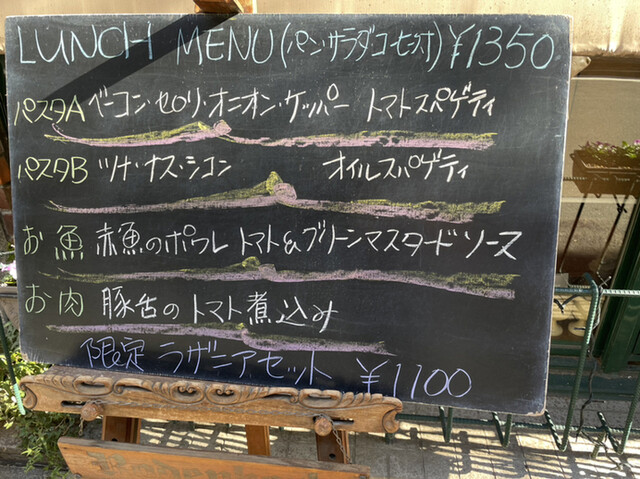 LUNCH MENU(パン・サラダ・コーヒー付) ¥1350
パスタA ベーコン・セロリ・オニオン・ケッパー トマトスパゲティ
パスタB ツナ・ナス・シコン オイルスパゲティ
お魚 赤魚のポワレ トマト&グリーンマスタードソース
お肉 豚舌のトマト煮込み
限定 ラザニアセット ¥1100